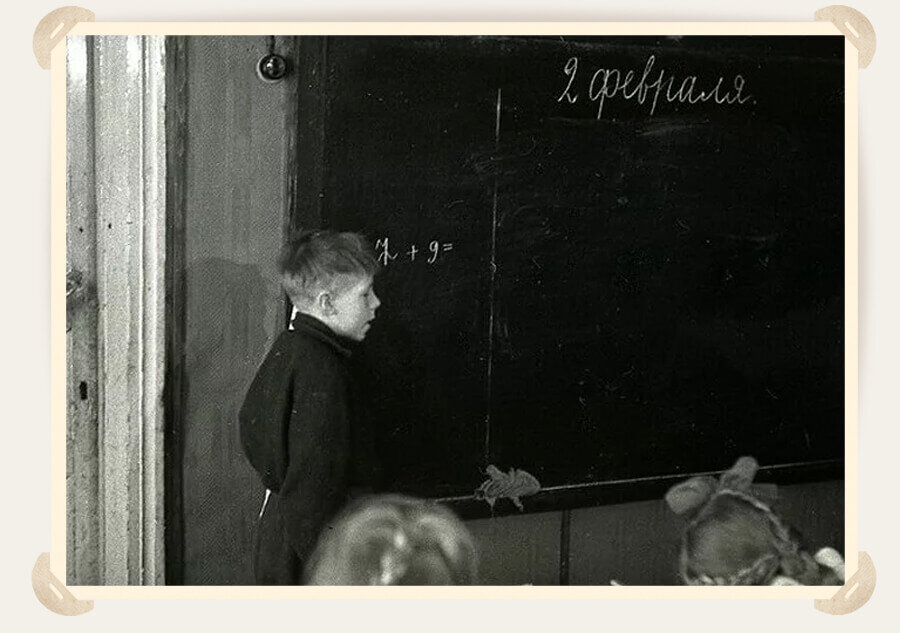 2 февраля.
7 + 9 =